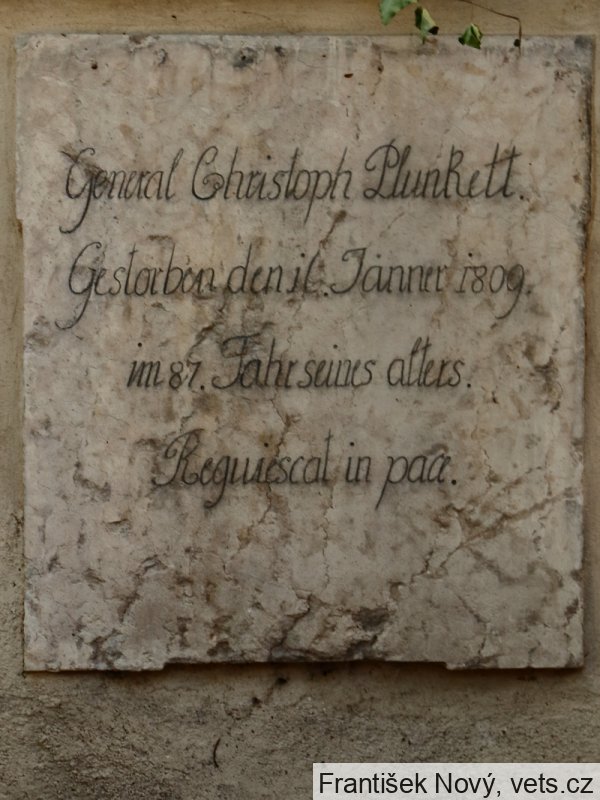 General Christoph Plunkett.
Gestorben den 16. Jänner 1809.
im 87. Jahr seines alters.
Requiescat in pace.
František Nový, vets.cz